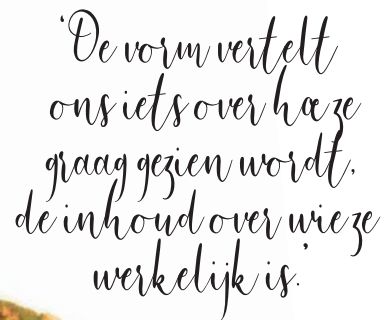 ‘De vorm vertelt
ons iets over hoe ze
graag gezien wordt,
de inhoud over wie ze
werkelijk is.’